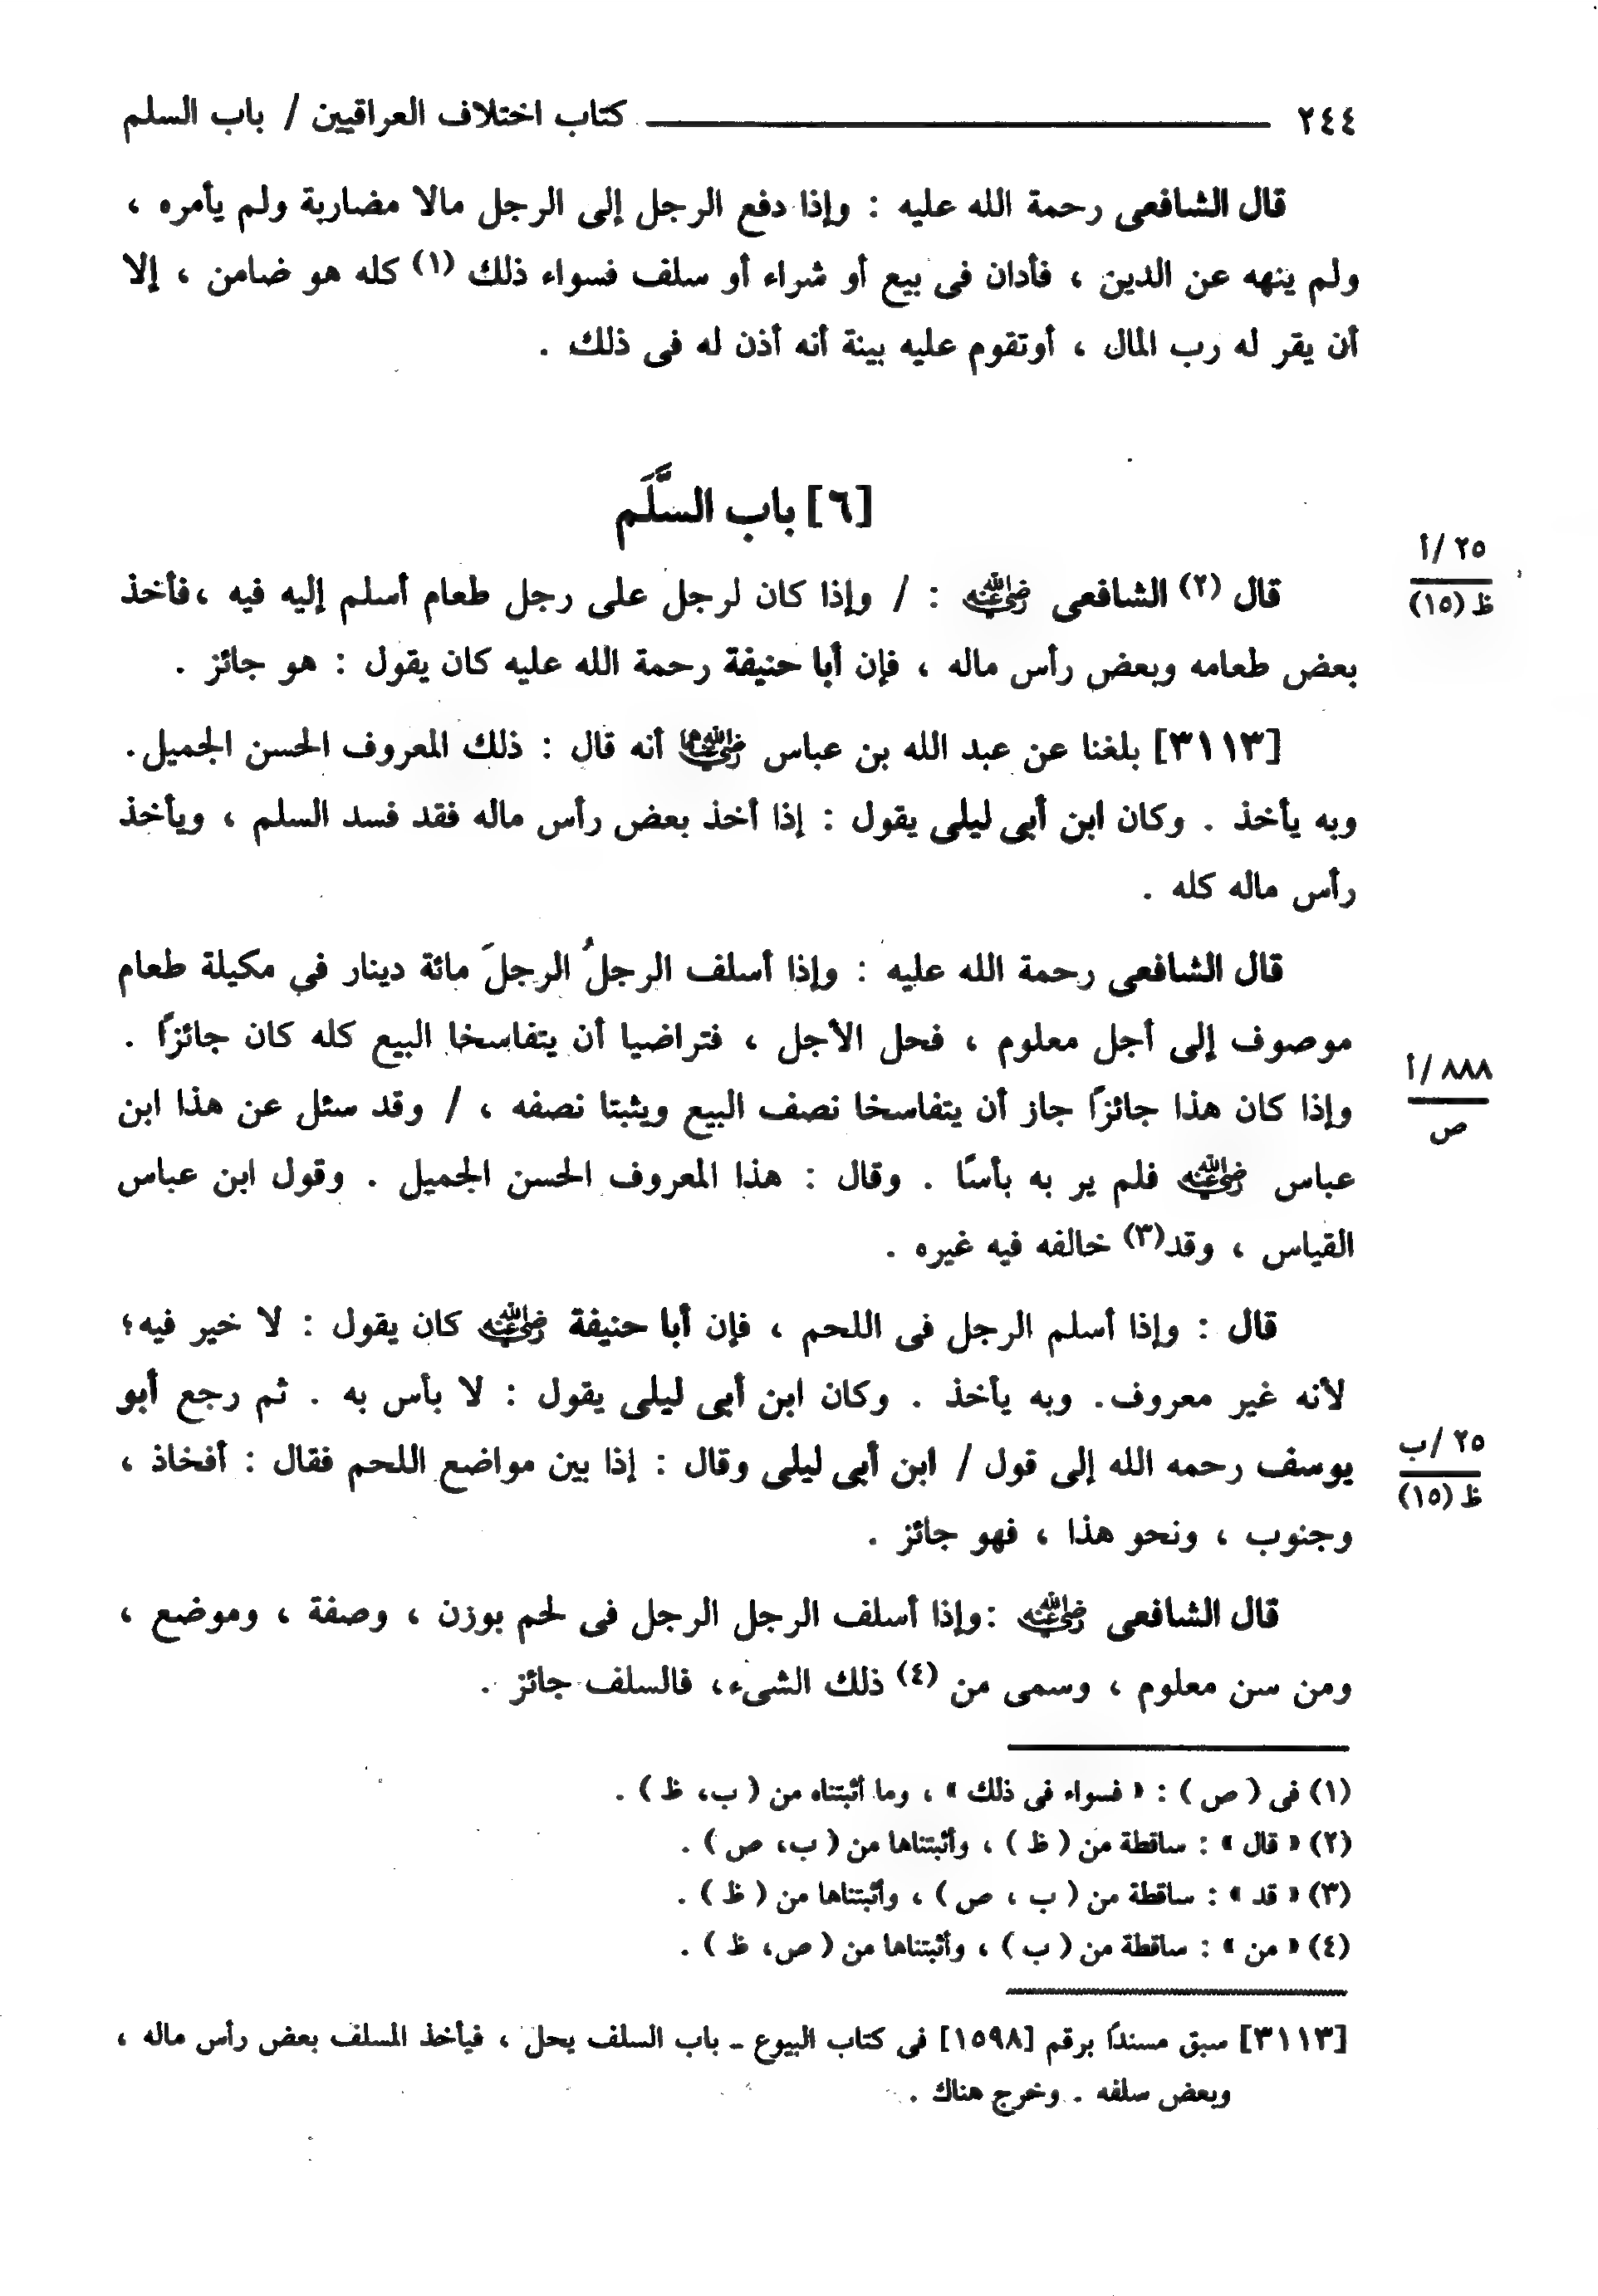 ٢٤٤ كتاب اختلاف العراقيين / باب السلم
قال الشافعى رحمة الله عليه : وإذا دفع الرجل إلى الرجل مالا مضاربة ولم يأمره ،
ولم ينهه عن الدين ، فأدان فى بيع أو شراء أو سلف فسواء ذلك (١) كله هو ضامن ، إلا
أن يقر له رب المال ، أوتقوم عليه بينة أنه أذن له فى ذلك .
[٦] باب السَّلَم
٢٥ /أ
ظ (١٥)
قال (٢) الشافعى رضي الله عنه : / وإذا كان لرجل على رجل طعام أسلم إليه فيه ،فأخذ
بعض طعامه وبعض رأس ماله ، فإن أبا حنيفة رحمة الله عليه كان يقول : هو جائز .
[٣١١٣] بلغنا عن عبد الله بن عباس رضي الله عنهما أنه قال : ذلك المعروف الحسن الجميل.
وبه يأخذ . وكان ابن أبى ليلى يقول : إذا أخذ بعض رأس ماله فقد فسد السلم ، ويأخذ
رأس ماله كله .
قال الشافعى رحمة الله عليه : وإذا أسلف الرجلُ الرجلَ مائة دينار في مكيلة طعام
موصوف إلى أجل معلوم ، فحل الأجل ، فتراضيا أن يتفاسخا البيع كله كان جائزًا .
٨٨٨ /أ
ص
وإذا كان هذا جائزًا جاز أن يتفاسخا نصف البيع ويثبتا نصفه ، / وقد سئل عن هذا ابن
عباس رضي الله عنه فلم ير به بأسًا . وقال : هذا المعروف الحسن الجميل . وقول ابن عباس
القياس ، وقد(٣) خالفه فيه غيره .
قال : وإذا أسلم الرجل فى اللحم ، فإن أبا حنيفة رضي الله عنه كان يقول : لا خير فيه؛
لأنه غير معروف. وبه يأخذ . وكان ابن أبى ليلى يقول : لا بأس به . ثم رجع أبو
٢٥ /ب
ظ (١٥)
يوسف رحمه الله إلى قول / ابن أبى ليلى وقال : إذا بين مواضع اللحم فقال : أفخاذ ،
وجنوب ، ونحو هذا ، فهو جائز .
قال الشافعى رضي الله عنه :وإذا أسلف الرجل الرجل فى لحم بوزن ، وصفة ، وموضع ،
ومن سن معلوم ، وسمى من (٤) ذلك الشىء، فالسلف جائز .
(١) فى ( ص ) : « فسواء فى ذلك » ، وما أثبتناه من ( ب، ظ ) .
(٢) « قال » : ساقطة من ( ظ ) ، وأثبتناها من ( ب، ص ) .
(٣) « قد » : ساقطة من ( ب ، ص ) ، وأثبتناها من ( ظ ) .
(٤) « من » : ساقطة من ( ب ) ، وأثبتناها من ( ص، ظ ) .
[٣١١٣] سبق مسندًا برقم [١٥٩٨] فى كتاب البيوع ـ باب السلف يحل ، فيأخذ المسلف بعض رأس ماله ،
وبعض سلفه . وخرج هناك .